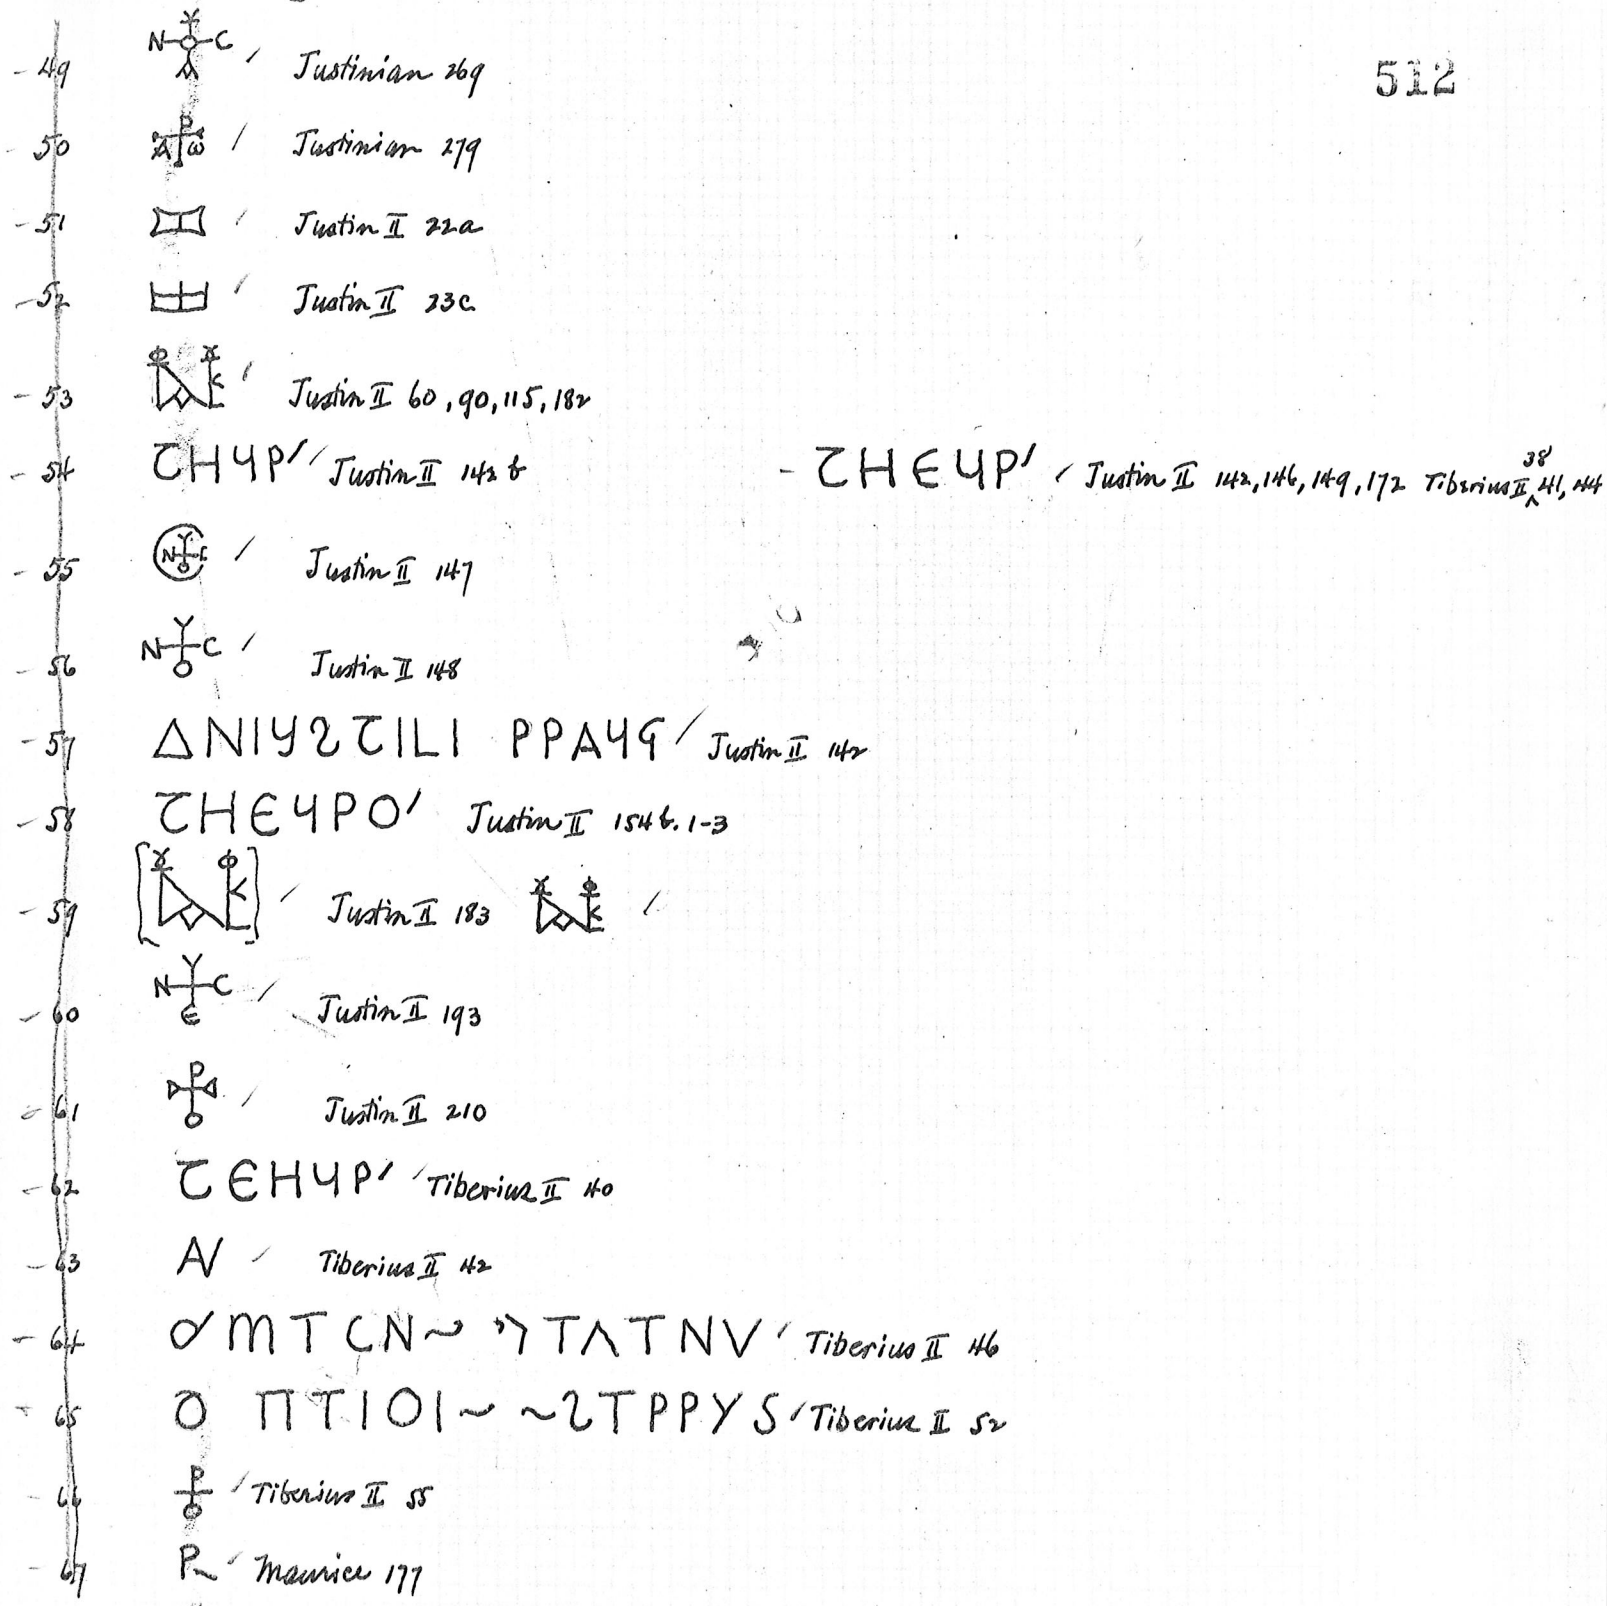 512
- 49 Justinian 269
- 50 Justinian 279
- 51 Justin II 22a
- 52 Justin II 23c
- 53 Justin II 60, 90, 115, 182
- 54 ՇHЧP' Justin II 142 b - ՇHЄЧP' Justin II 142, 146, 149, 172 Tiberius II 38 41, 44
- 55 Justin II 147
- 56 N Y C O Justin II 148
- 57 ΔNIYƧՇILI PPAЧG Justin II 142
- 58 ՇHЄЧPO' Justin II 154 b. 1-3
- 59 Justin II 183
- 60 N Y C Є Justin II 193
- 61 Justin II 210
- 62 ՇЄHЧP' Tiberius II 40
- 63 Tiberius II 42
- 64 TΛTNV Tiberius II 46
- 65 ΠTIOI~ ~ƧTPPYS Tiberius II 52
- 66 Tiberius II 55
- 67 Maurice 177